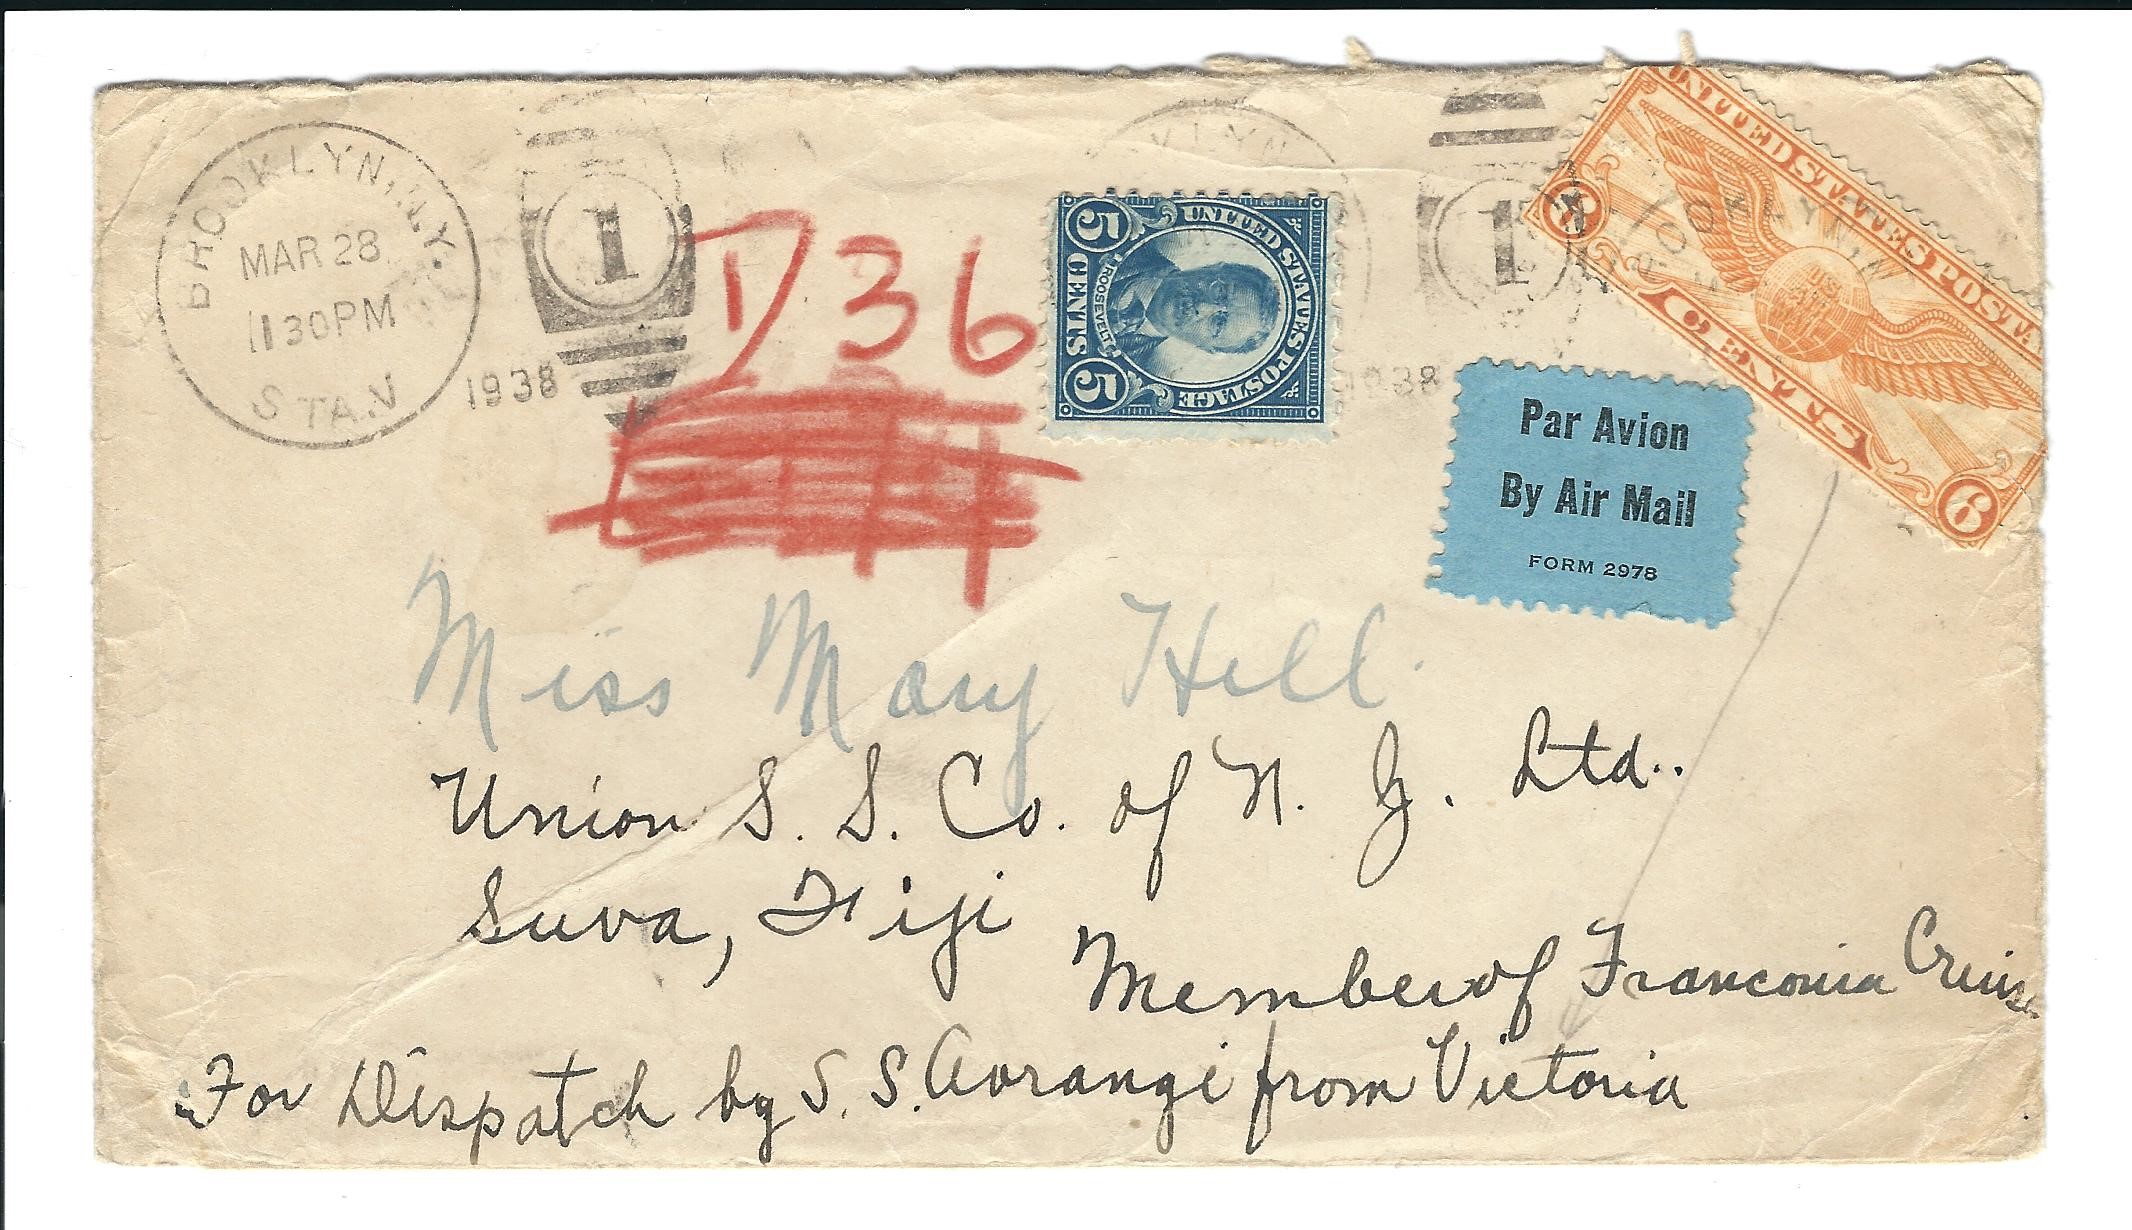 BROOKLYN, N.Y.
MAR 28
1130PM
STA.
1938
1
D36
UNITED STATES POSTAGE
ROOSEVELT
5 CENTS 5
KLYN
1
1938
UNITED STATES POSTA
6 CENTS 6
U.S. AIR MAIL
OOKLYN, N
Par Avion
By Air Mail
FORM 2978
Miss Mary Hill.
Union S. S. Co. of N. Z. Ltd..
Suva, Fiji
Member of Franconia Cruise
For Dispatch by S. S. Aorangi from Victoria